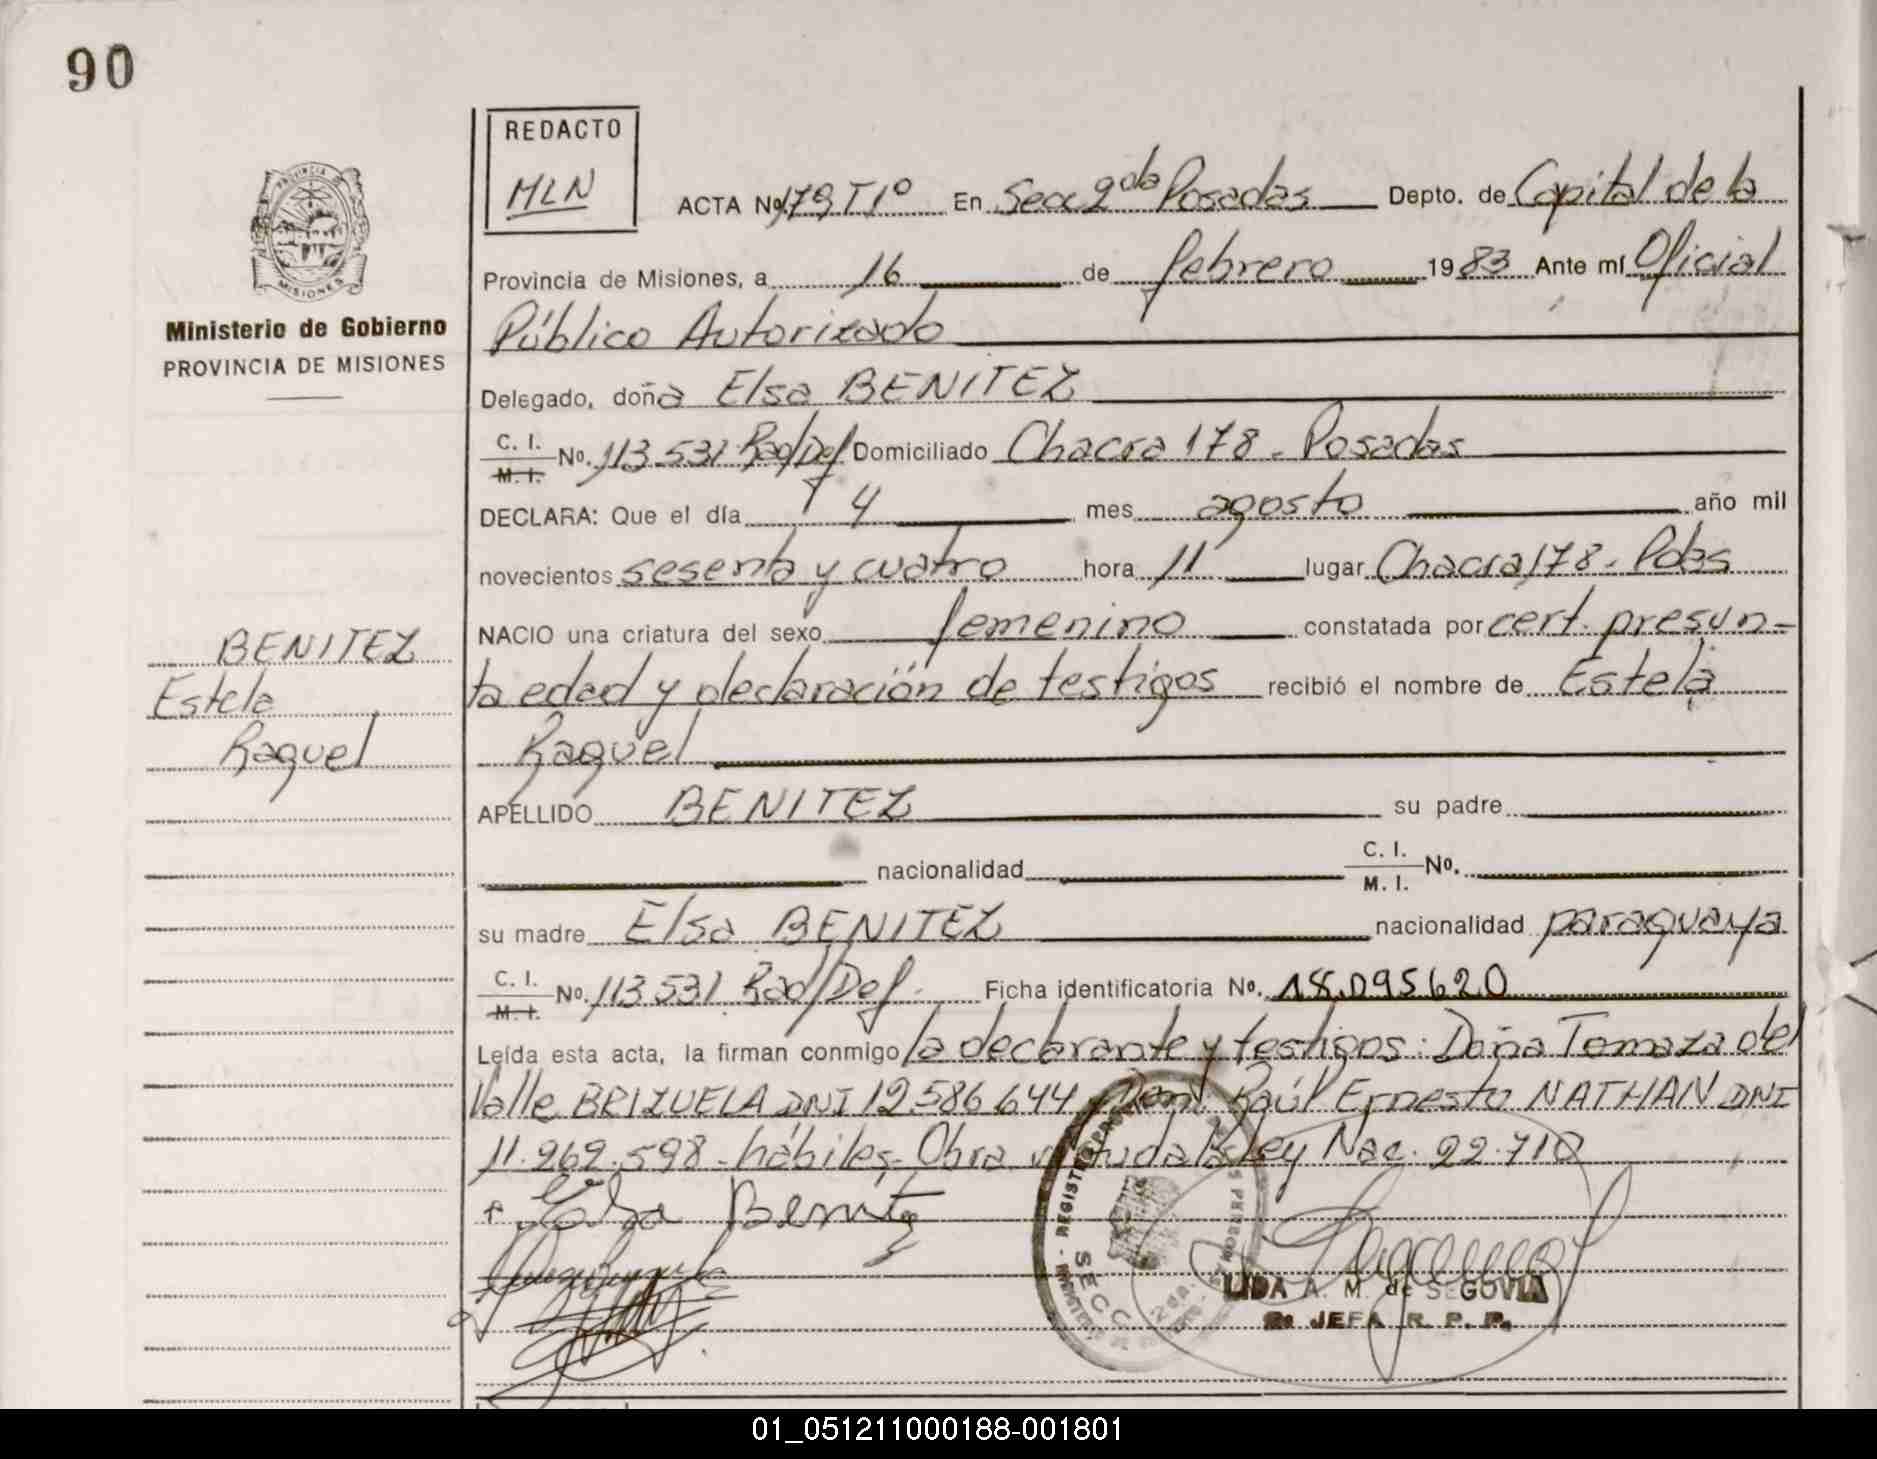 90
REDACTO
MLN
PROVINCIA DE
MISIONES
Ministerio de Gobierno
PROVINCIA DE MISIONES
ACTA Nº 179 T1º En Secc 2da Posadas Depto. de Capital de la
Provincia de Misiones, a 16 de febrero 1983 Ante mí Oficial
Público Autorizado
Delegado, doña Elsa BENITEZ
C. I.
M. I.
No. 113.531 Rad/Def Domiciliado Chacra 178 - Posadas
DECLARA: Que el día 4 mes agosto año mil
novecientos sesenta y cuatro hora 11 lugar Chacra 178 - Pdas
NACIO una criatura del sexo femenino constatada por cert. presun-
ta edad y declaración de testigos recibió el nombre de Estela
Raquel
BENITEZ
Estela
Raquel
APELLIDO BENITEZ su padre
nacionalidad C. I.
M. I. No.
su madre Elsa BENITEZ nacionalidad paraguaya
C. I.
M. I.
No. 113531 Rad/Def. Ficha identificatoria No. 18.095620
Leída esta acta, la firman conmigo la declarante y testigos: Doña Tomaza del
Valle BRIZUELA DNI 12.586.644 y Don Raúl Ernesto NATHAN DNI
11.969.598 - hábiles - Obra Ley Nac. 22.710
Elsa Benitez
REGISTRO
SECC 2da.
LIDA A. M. de SEGOVIA
JEFA R. P. P.
01_051211000188-001801